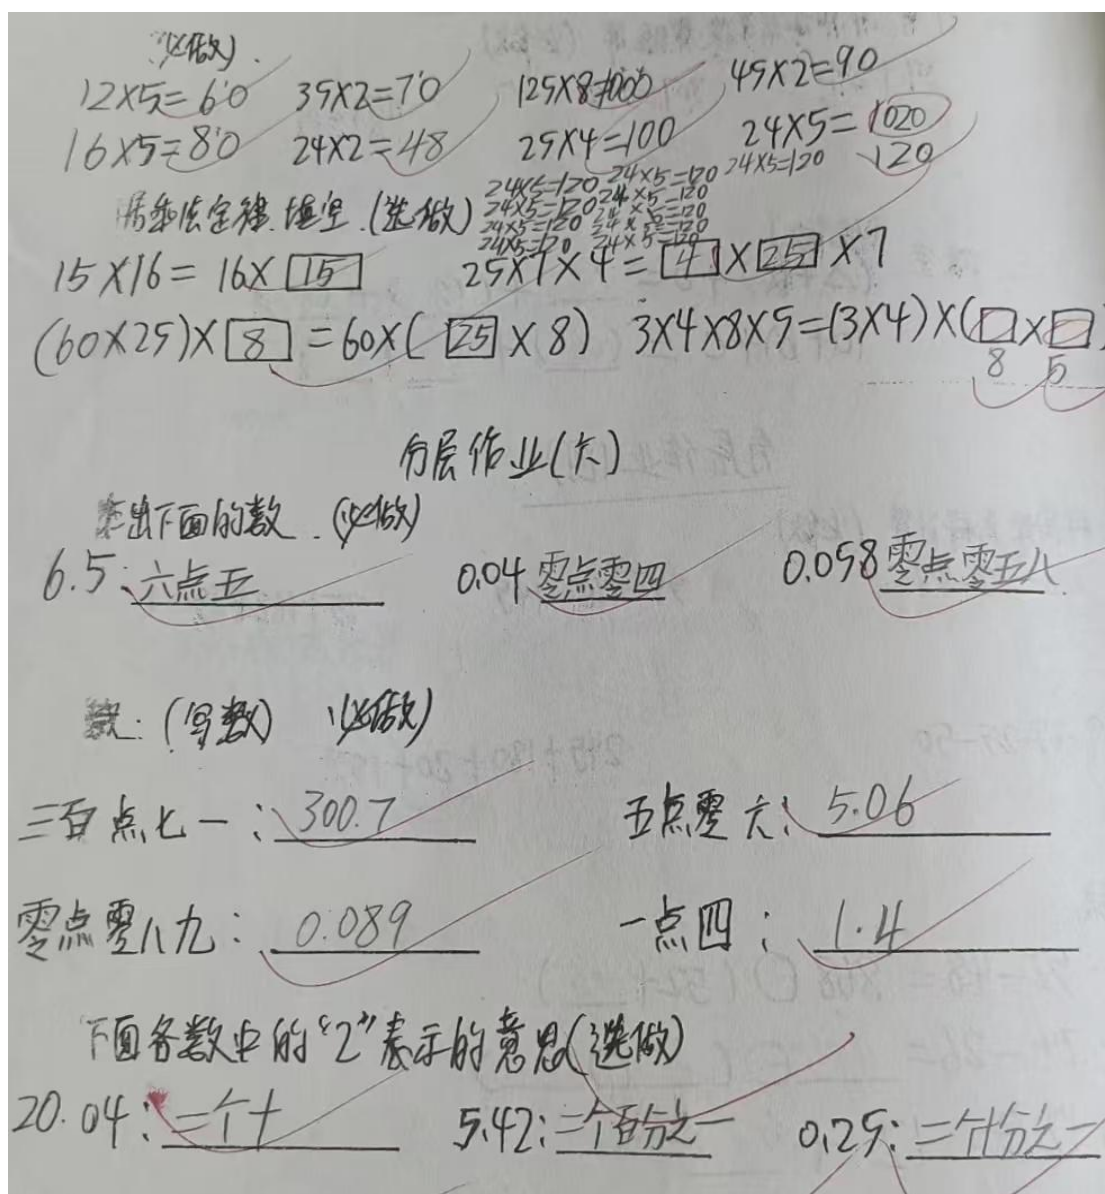 (必做).
12×5=60 35×2=70 125×8=1000 45×2=90
16×5=80 24×2=48 25×4=100 24×5=1020
24×5=120 24×5=120 24×5=120 120
用乘法定律填空.(选做) 24×5=120 24×5=120
24×5=120 24×5=120
24×5=120 24×5=120
15×16=16×15 25×7×4=4×25×7
(60×25)×8=60×(25×8) 3×4×8×5=(3×4)×(□×□)
8 5
分层作业(六)
出下面的数.(必做)
6.5:六点五 0.04 零点零四 0.058 零点零五八
数:(写数) (必做)
三百点七一:300.7 五点零六:5.06
零点零八九:0.089 一点四:1.4
下面各数中的“2”表示的意思(选做)
20.04:二个十 5.42:二个百分之一 0.25:二个十分之一